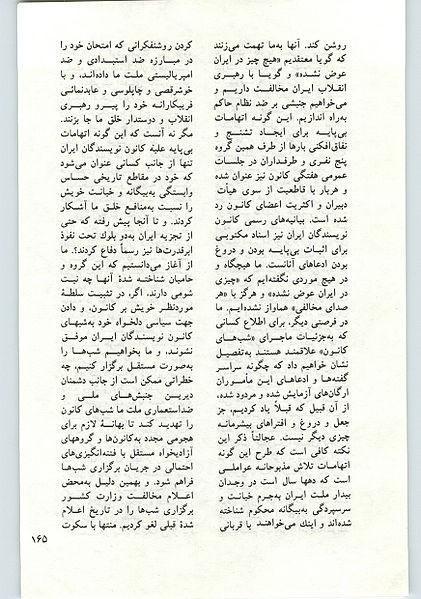 روشن کند. آنها به‌ما تهمت می‌زنند
که گویا معتقدیم «هیچ چیز در ایران
عوض نشده» و گویـا با رهبـری
انقلاب ایران مخالفت داریـم و
می‌خواهیم جنبشی بر ضد نظام حاکم
به‌راه اندازیم. این گونه اتهامات
بی‌پایـه برای ایجـاد تشنـج و
نفاق‌افکنی بارها از طرف همین گروه
پنج نفری و طرفداران در جلسات
عمومی هفتگی کانون نیز عنوان شده
و هربار با قاطعیت از سوی هیأت
دبیران و اکثریت اعضای کانون رد
شده است. بیانیه‌های رسمی کانون
نویسندگان ایران نیز اسناد مکتوبی
برای اثبات بی‌پایـه بودن و دروغ
بودن ادعاهای آنانست. ما هیچگاه و
در هیچ موردی نگفته‌ایم که «چیزی
در ایران عوض نشده» و هرگز با «هر
صدای مخالفی» هماواز نشده‌ایـم. ما
در فرصتی دیگر، برای اطلاع کسانی
که به‌جزئیات ماجرای «شب‌های
کانون» علاقمند هستند به‌تفصیل
نشان خواهیم داد که چگونه سراسر
گفته‌ها و ادعاهای ایـن مأمـوران
ارگان‌های آزمایش شده و مردود شده،
از آن قبیل که قبلاً یاد کردیم، جز
جعل و دروغ و افتراهای بیشرمانـه
چیزی دیگر نیست. عجالتاً ذکر این
نکته کافی است که طرح این گونه
اتهامات تلاش مذبوحانه عواملی
است که دهها سال است در وجدان
بیدار ملت ایران به‌جرم خیانت و
سرسپردگی به‌بیگانه محکوم شناخته
شده‌اند و اینك می‌خواهند با قربانی
کردن روشنفکرانی که امتحان خود را
در مبـارزه ضد استبـدادی و ضد
امپریالیستی ملت ما داده‌اند، و با
خوشرقصی و چاپلوسی و عابدنمائی
فریبکارانـه خود را پیـرو رهبـری
انقلاب و دوستدار خلق ما جا بزنند.
مگر نه آنست که این گونه اتهامات
بی‌پایه علیهٔ کانون نویسندگان ایران
تنها از جانب کسانی عنوان می‌شود
که خود در مقاطع تاریخی حساس
وابستگی به‌بیگانه و خیانت خویش
را نسبت به‌منافع خلق ما آشکار
کردند. و تا آنجا پیش رفته که حتی
از تجزیه ایران به‌دو بلوك تحت نفوذ
ابرقدرت‌ها نیز رسماً دفاع کردند؟. ما
از آغاز می‌دانستیم که این گروه و
حامیان شناخته شدهٔ آنهـا چه نیت
شومی دارند. اگر، در تثبیـت سلطـهٔ
موردنظر خویش بر کانون، و دادن
جهت سیاسی دلخواه خود به‌شبهای
کانـون نویسندگان ایـران موفـق
نشونـد، و ما بخواهیـم شب‌هـا را
به‌صورت مستقل برگزار کنیم، چه
خطراتی ممکن است از جانب دشمنان
دیریـن جنبش‌هـای ملـی و
ضداستعماری ملت ما شب‌های کانون
را تهدیـد کنـد تا بهانـهٔ لازم برای
هجومی مجدد به‌کانون‌ها و گروههای
آزادیخواه مستقل با فتنه‌انگیزی‌های
احتمالی در جریان برگزاری شب‌ها
فراهم شود. و بهمین دلیل به‌محض
اعـلام مخالفـت وزارت کشـور
برگزاری شب‌ها را در تاریخ اعلام
شدهٔ قبلی لغو کردیم. منتها با سکوت
۱۶۵